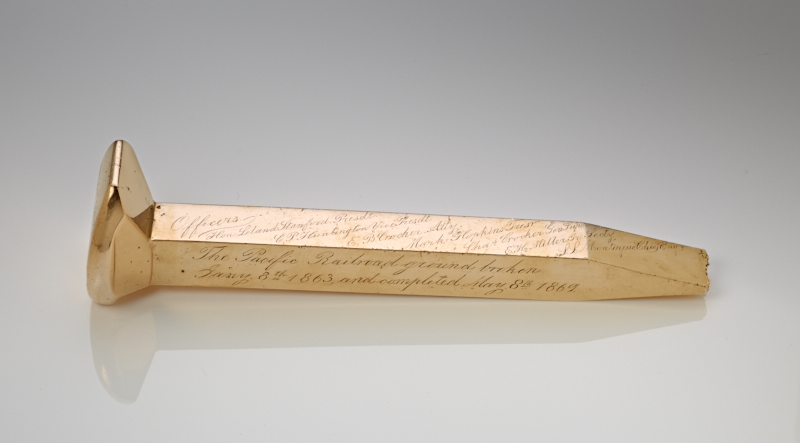 Officers
Hon. Leland Stanford. Presdt
C. P. Huntington Vice Presdt
E. B. Crocker. Atty.
Mark Hopkins. Treas
Chas Crocker Gen Supt
E. H. Miller Jr. Secty
The Pacific Railroad ground broken
Jany. 8th 1863, and completed May 8th 1869